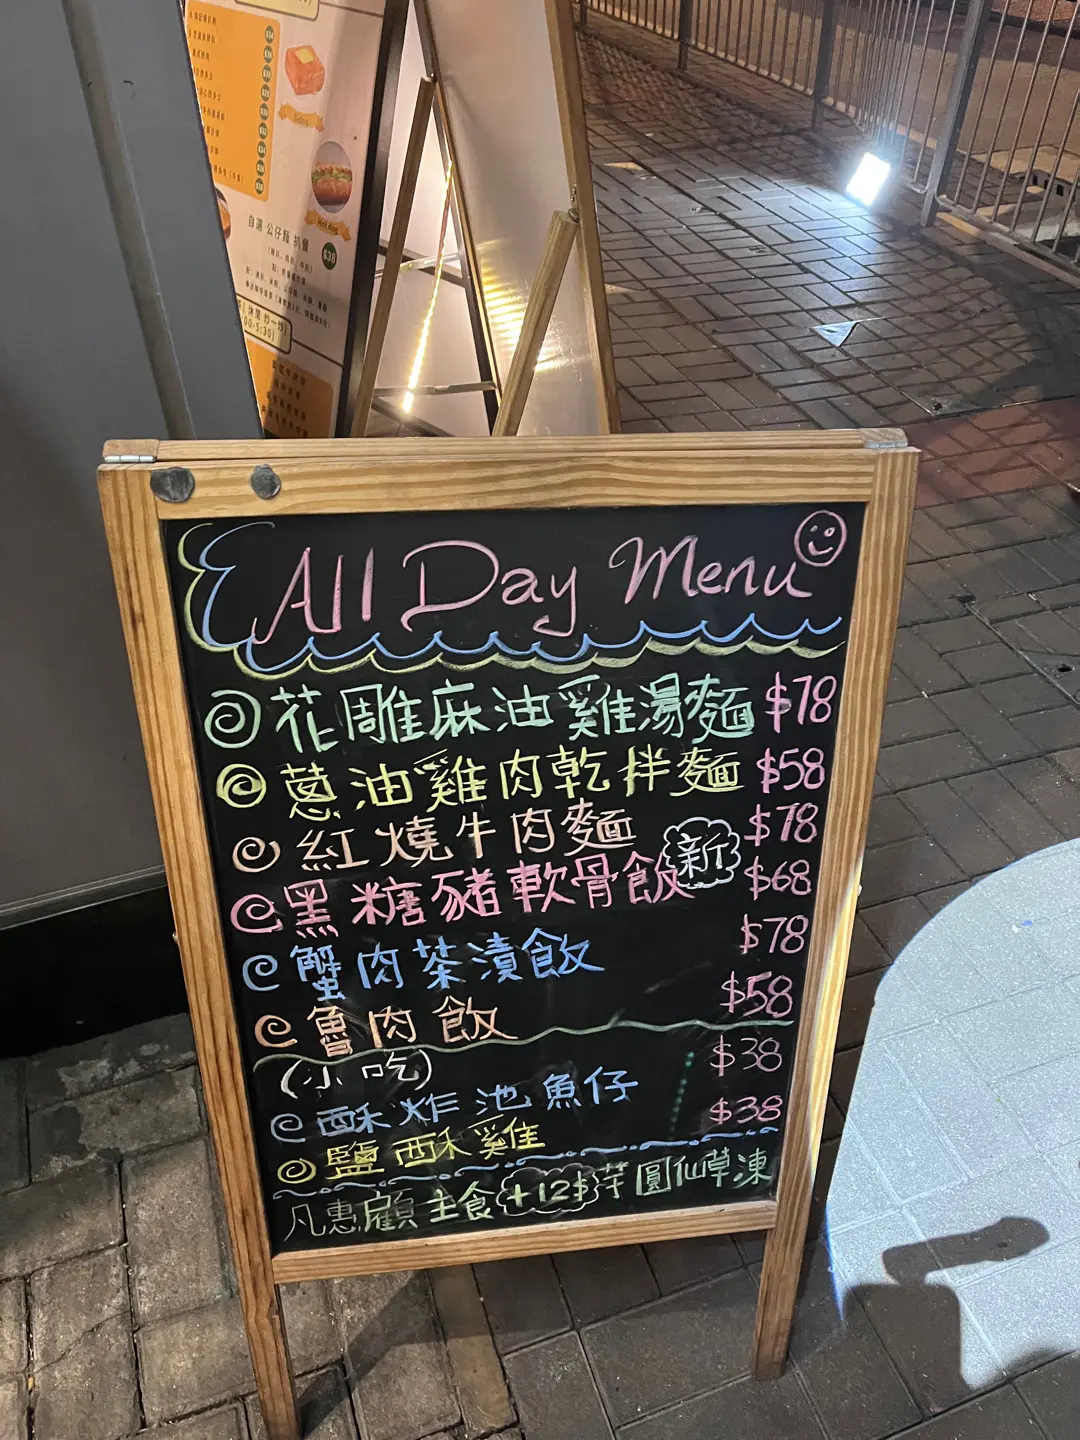 自選 公仔麵 扒餐
$38
Hot dog
All Day Menu
花雕麻油雞湯麵 $78
蔥油雞肉乾拌麵 $58
紅燒牛肉麵 $78
黑糖豬軟骨飯 新 $68
蟹肉茶漬飯 $78
魯肉飯 $58
(小吃)
酥炸池魚仔 $38
鹽酥雞 $38
凡惠顧主食+12$芋圓仙草凍